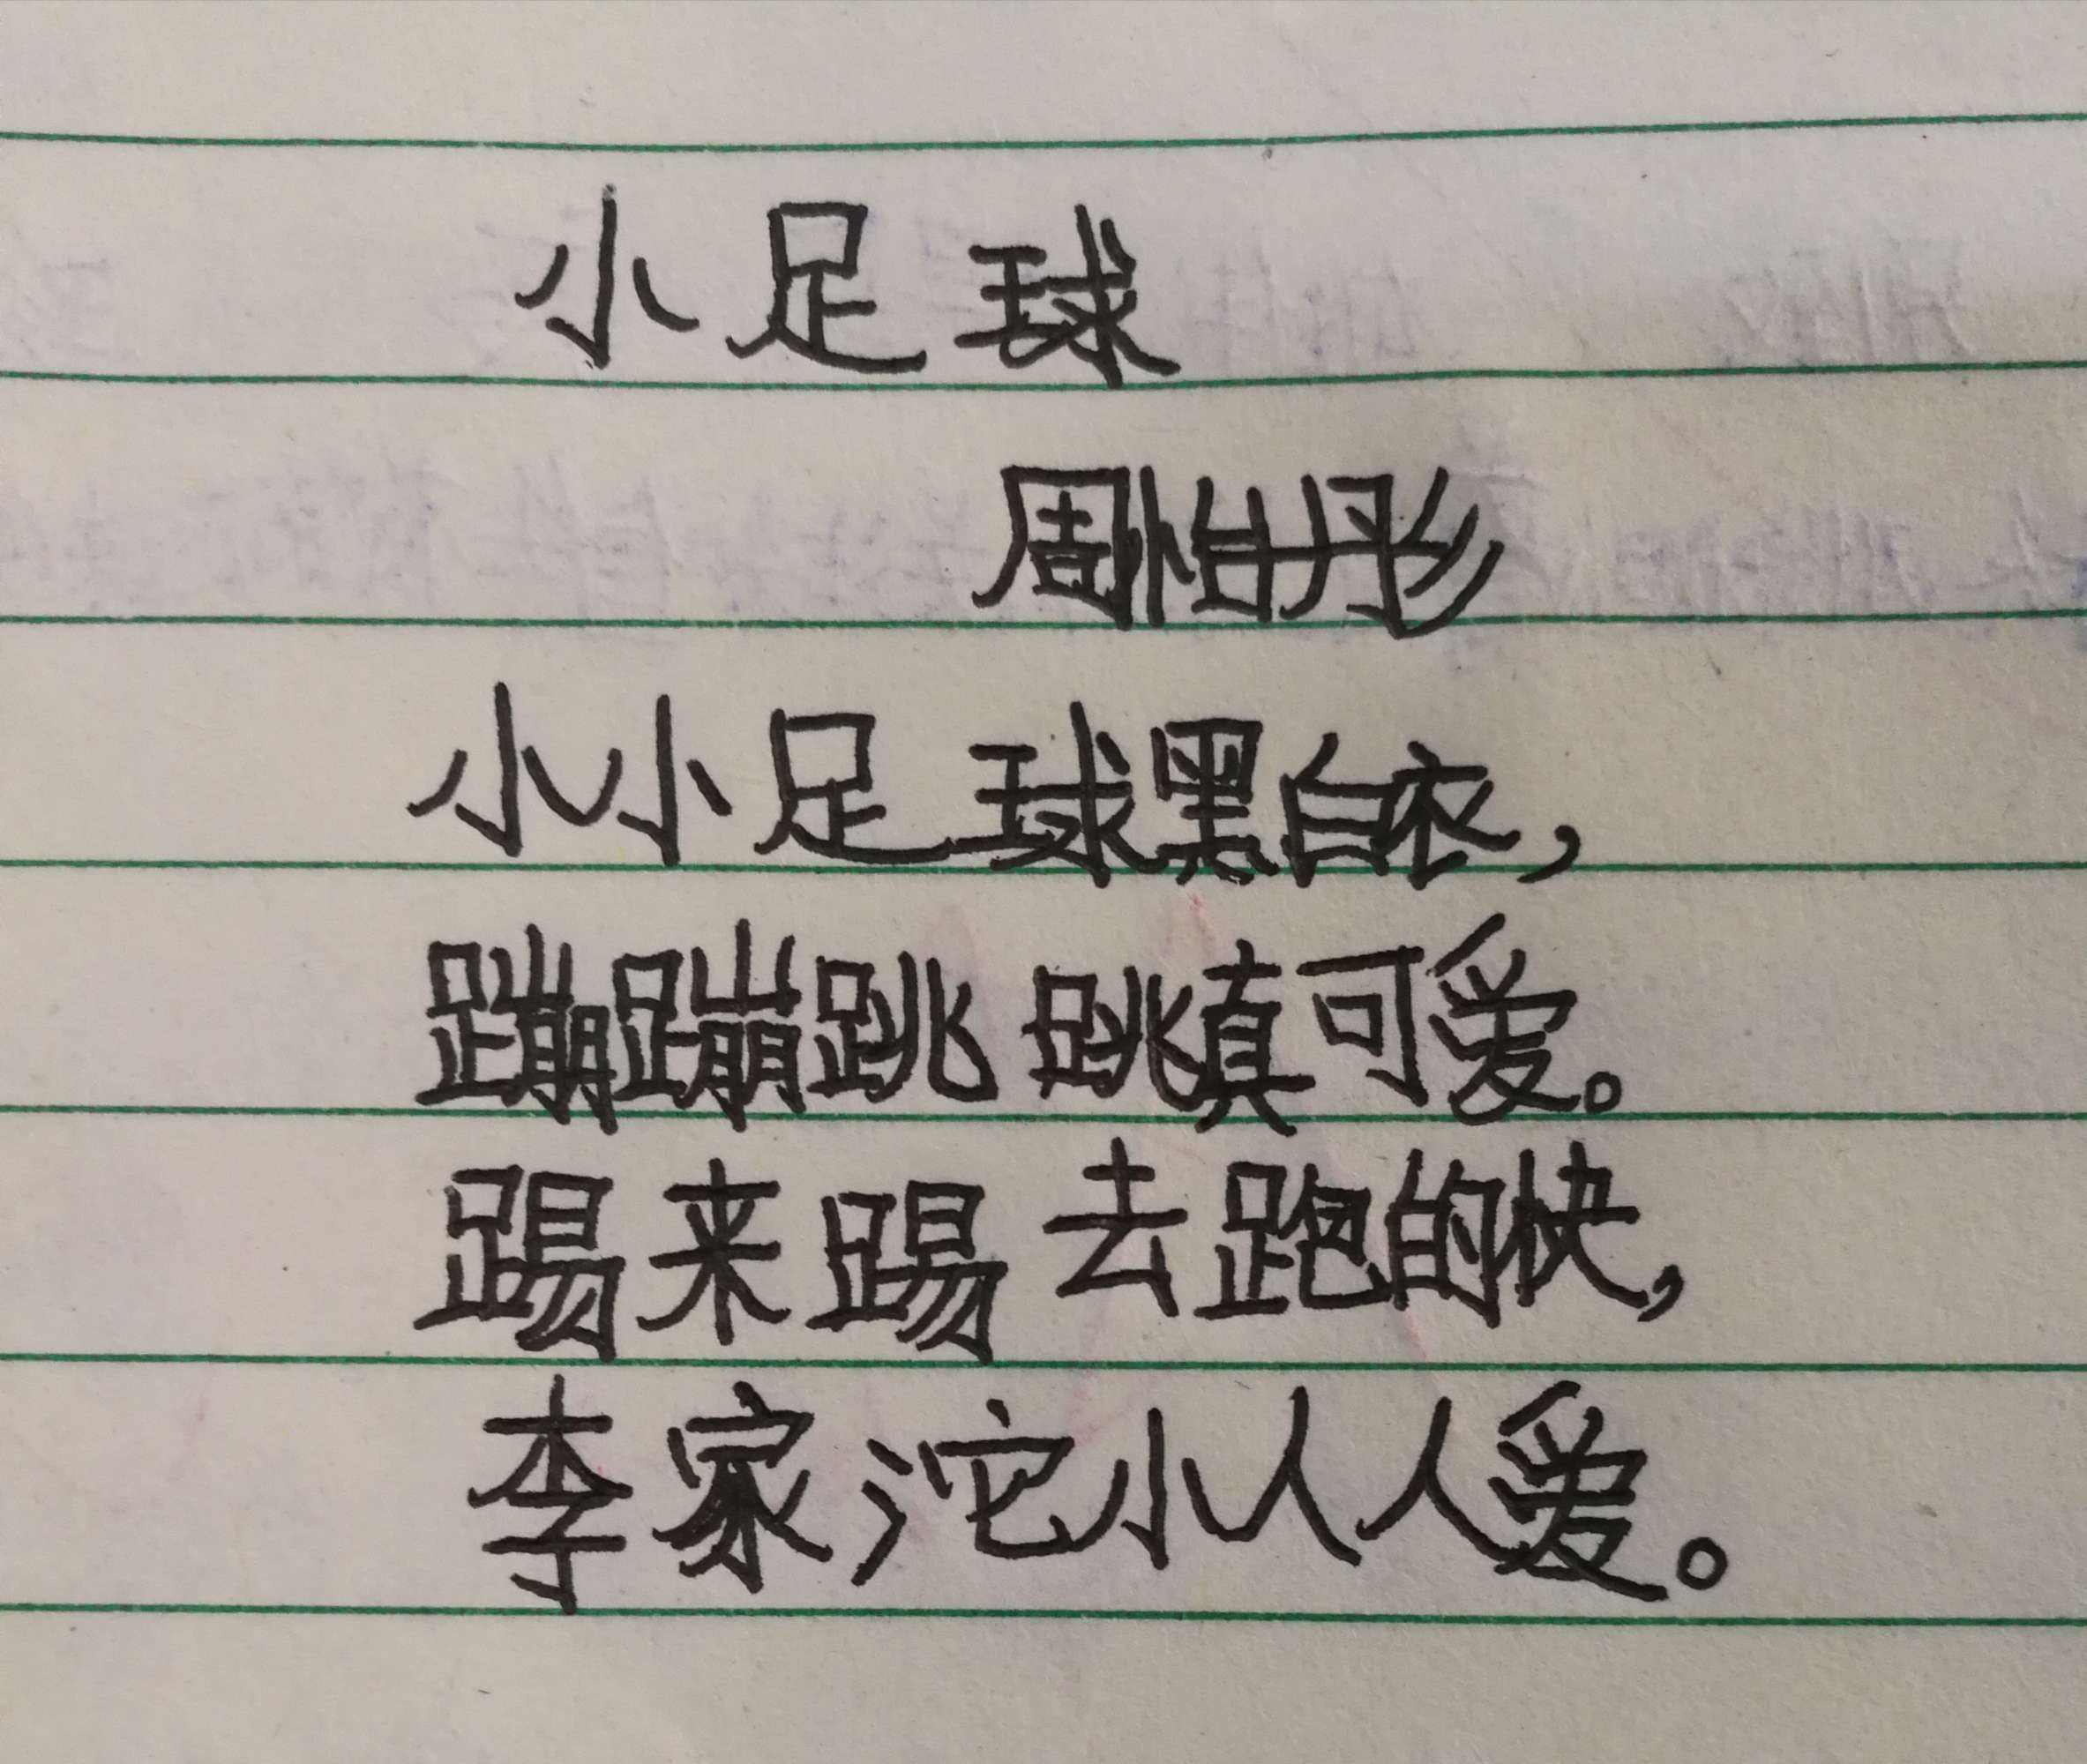 小足球
周怡彤
小小足球黑白衣，
蹦蹦跳跳真可爱。
踢来踢去跑的快，
李家沱小人人爱。